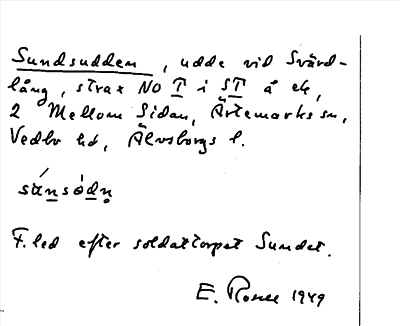 Sundsudden, udde vid Svärd-
lång, strax NO T i ST å ek,
2 Mellom Sidan, Ärtemarks sn,
Vedbo hd, Älvsborgs l.
F.led efter soldattorpet Sundet.
E. Rosell 1949